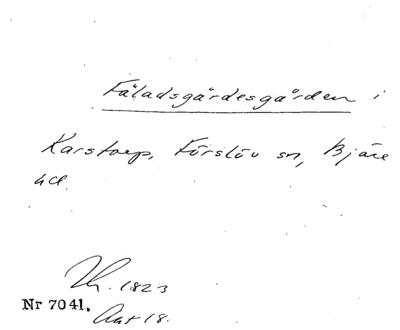 Fäladsgårdesgården i
Karstorp, Förslöv sn, Bjäre
hd.
Th. 1823
Nr 7041.
Ant 18.